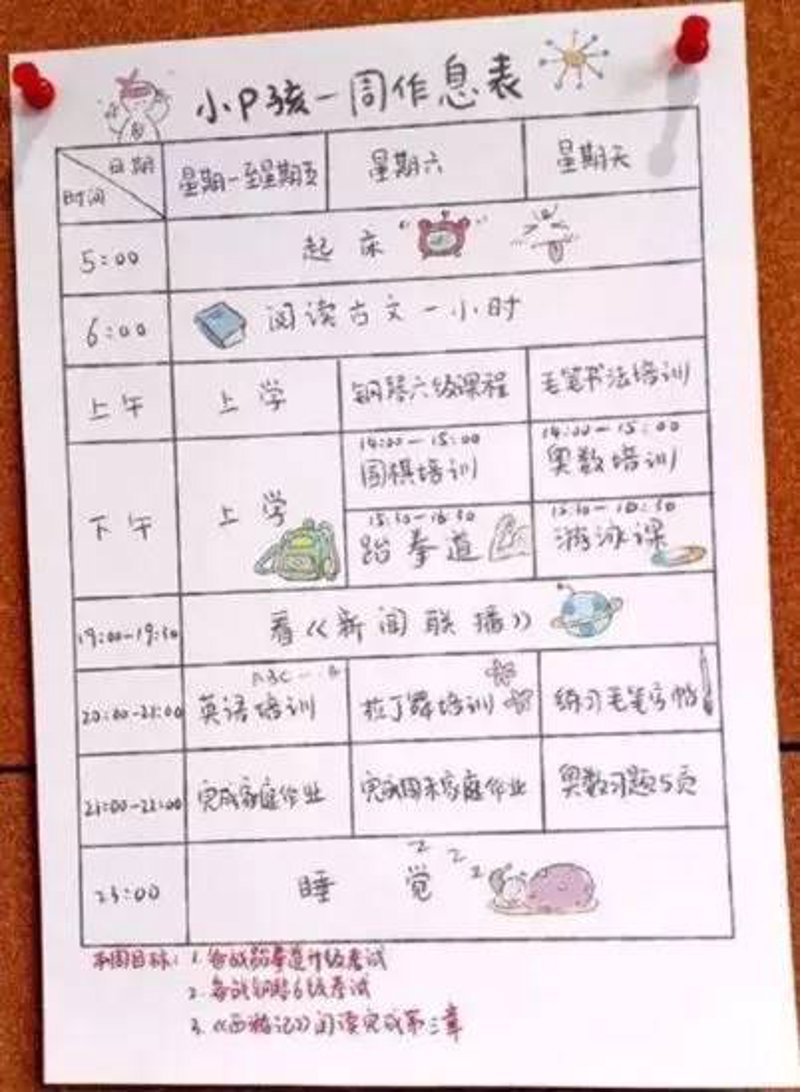 小P孩一周作息表
日期
时间
星期一至星期五
星期六
星期天
5:00
起床
6:00
阅读古文一小时
上午
上学
钢琴六级课程
毛笔书法培训
下午
上学
14:00—15:00
围棋培训
14:00—15:00
奥数培训
15:30—16:30
跆拳道
游泳课
19:00—19:30
看《新闻联播》
20:00—21:00
ABC
英语培训
拉丁舞培训
练习毛笔字帖
21:00—22:00
完成家庭作业
完成周末家庭作业
奥数习题5页
23:00
睡觉
z z z
本周目标：1. 备战跆拳道升级考试
2. 备战钢琴6级考试
3.《西游记》阅读完成第三章